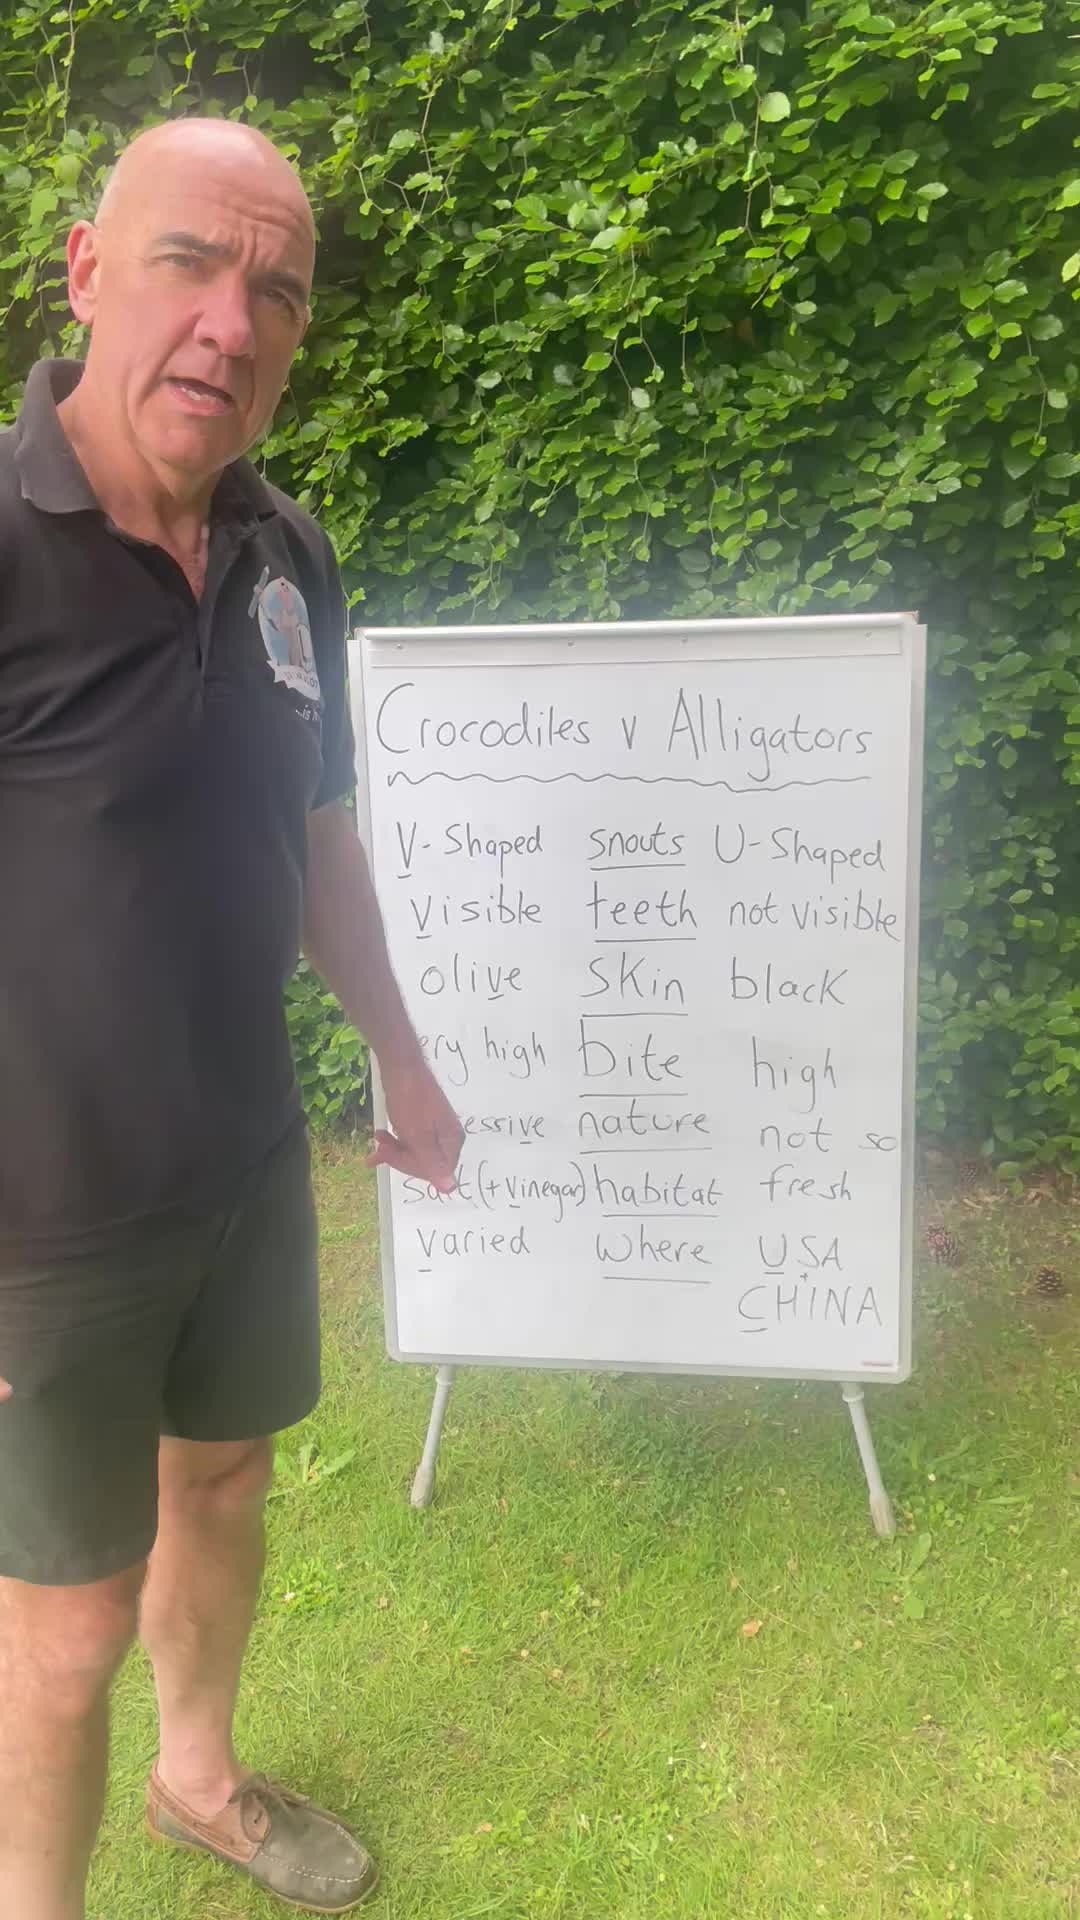 Crocodiles v Alligators
V-Shaped snouts U-Shaped
visible teeth not visible
olive skin black
high bite high
nature not so
salt (+ vinegar) habitat fresh
varied where USA
+
CHINA